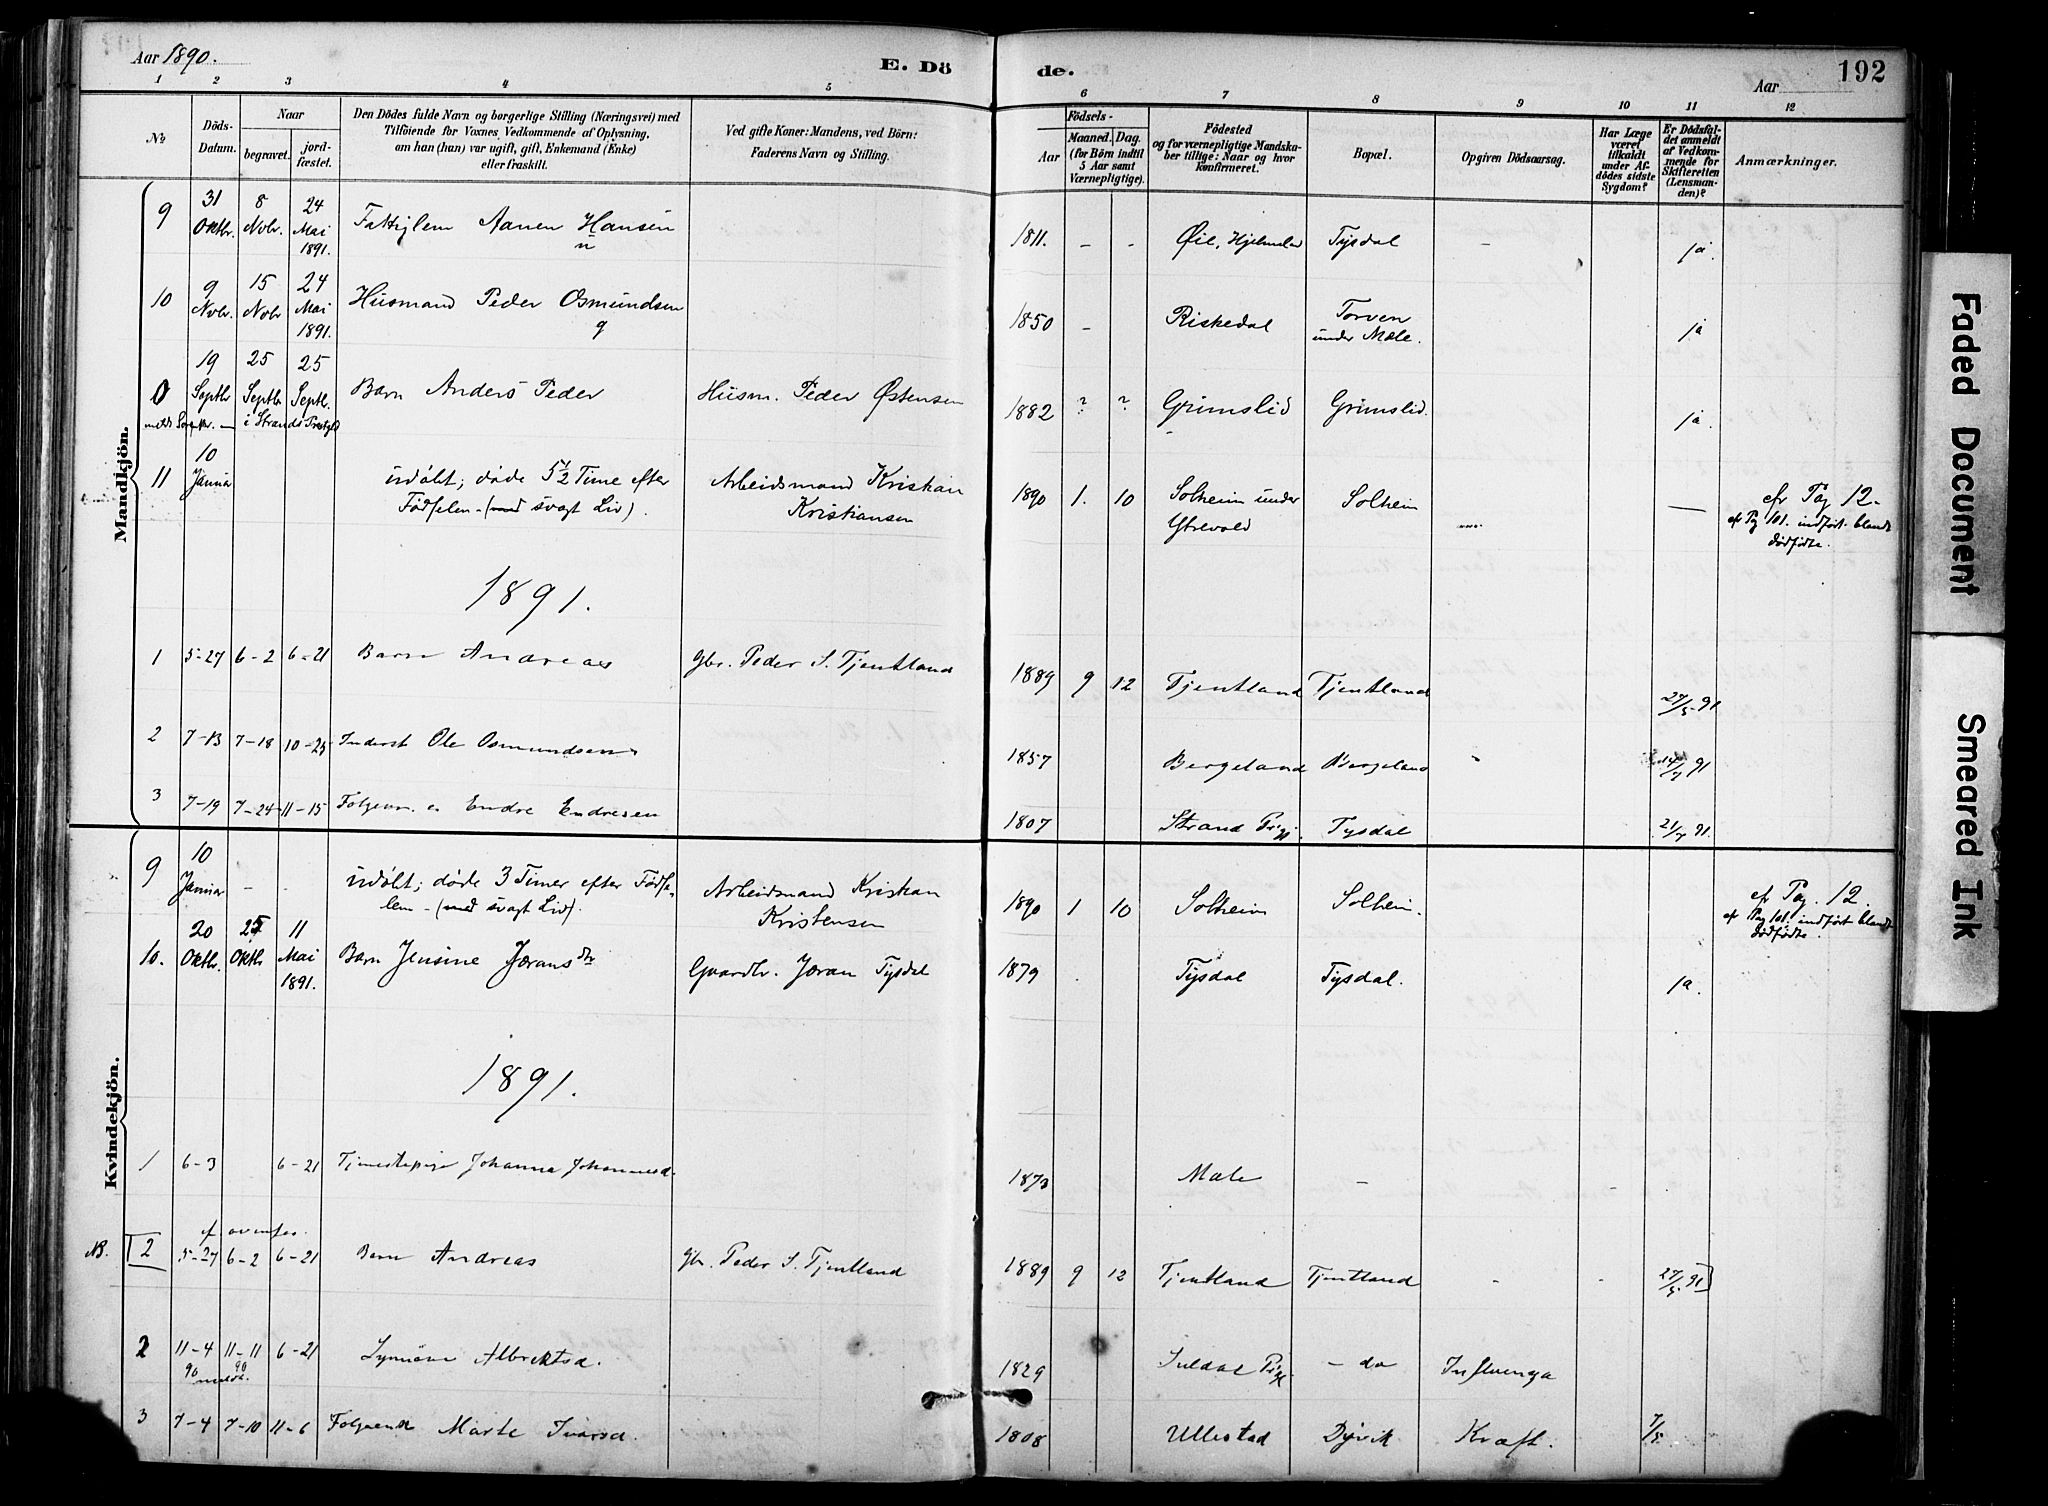 Aar 1890.
E. Döde.
Aar
192
1 2 3 4 5 6 7 8 9 10 11 12
No
Döds-Datum.
Naar
begravet.
jord-fæstet.
Den Dödes fulde Navn og borgerlige Stilling (Næringsvei) med
Tilföiende for Voxnes Vedkommende af Oplysning,
om han (hun) var ugift, gift, Enkemand (Enke)
eller fraskilt.
Ved gifte Koner: Mandens, ved Börn:
Faderens Navn og Stilling.
Födsels-
Aar
Maaned. Dag.
(for Börn indtil
5 Aar samt
Værnepligtige).
Födested
og for værnepligtige Mandska-
ber tillige: Naar og hvor
konfirmeret.
Bopæl.
Opgiven Dödsaarsag.
Har Læge
været
tilkaldt
under Af-
dödes sidste
Sygdom?
Er Dödsfal-
det anmeldt
af Vedkom-
mende for
Skifteretten
(Lensman-
den)?
Anmærkninger.
Mandkjön.
9 31 Oktbr. 8 Novbr. 24 Mai 1891. Fattiglem Aanen Hansen u 1811. - - Øie, Hjelmeland Tysdal - ja.
10 9 Novbr. 15 Novbr 24 Mai 1891. Husmand Peder Osmundsen g 1850 - Riskedal Torven under Mæle. ja
0 19 Septbr 25 Septbr 25 Septb. Barn Anders Peder Husm. Peder Østensen 1882 ? ? Grimslid Grimslid. ja.
i Strands Prstgjld
11 10 Januar udøbt; døde 5 1/2 Time efter Arbeidsmand Kristian 1890 1. 10 Solheim under Solheim — cfr Pag 12.
Fødselen - (med svagt Liv). Kristiansen Ytrevold cf Pg 101. indført blandt
dødfødte.
1891.
1 5-27 6-2 6-21 Barn Andreas Gbr. Peder S. Tjentland 1889 9 12 Tjentland Tjentland 27/5 91
2 7-13 7-18 10-25 Inderst Ole Osmundsen 1857 Bergeland Bergeland 14/7 91
3 7-19 7-24 11-15 Folgem. e. Endre Endresen 1807 Strand Prgj. Tysdal 21/7 91.
Kvindekjön.
9 10 Januar - - udøbt; døde 3 Timer efter Fødse- Arbeidsmand Kristian 1890 1 10 Solheim Solheim. cf Pag. 12.
len - (med svagt Liv). Kristensen cf Pag 101. indført blandt
dødfødte.
10. 20 Oktbr. 25 Oktbr 11 Mai 1891. Barn Jensine Jøransdtr Gaardbr. Jøran Tysdal 1879 Tysdal Tysdal. ja.
1891.
1 6-3 6-21 Tjenestepige Johanna Johannesd. 1873 Mæle -
cf ovenfor
NB. 2 5-27 6-2 6-21 Barn Andreas Gbr. Peder S. Tjentland 1889 9 12 Tjentland Tjentland - - 27/5 91]
2 11-4 90 11-11 90 6-21 Synnøve Albrektsd. 1829 Suldal Prgj. - do Influenza
meldt.
3 7-4 7-10 11-6 Folgeenk Marte Ivarsd. 1808 Ullestad Dyrvik Kræft. 7/5.
Faded Document
Smeared Ink